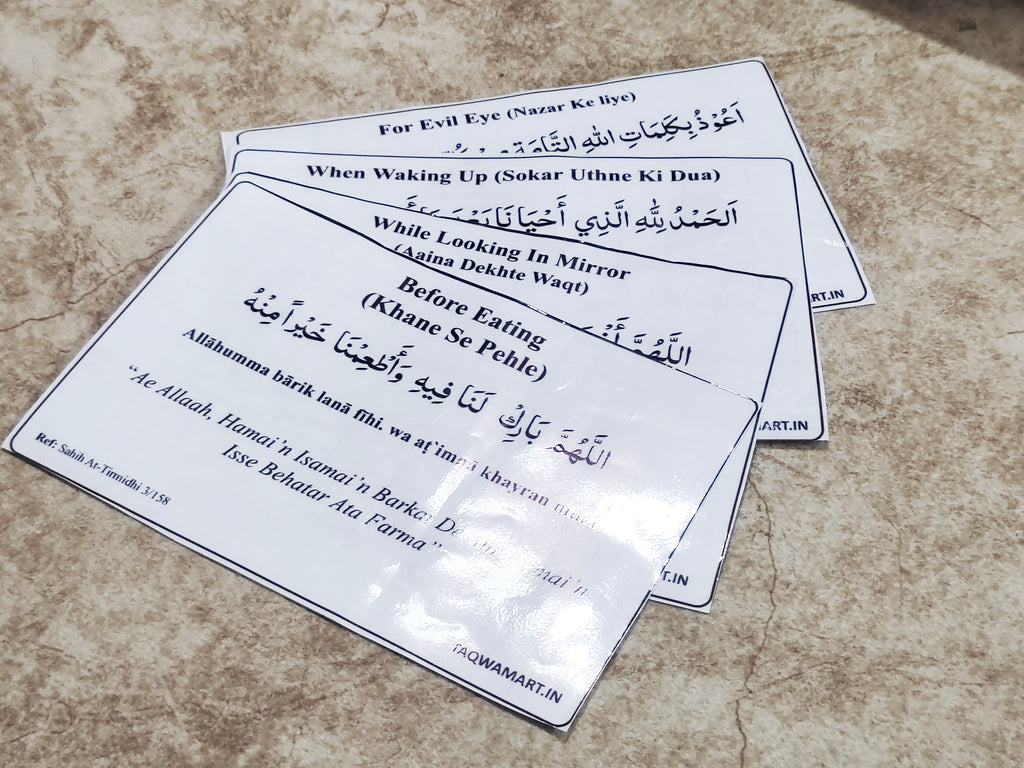 For Evil Eye (Nazar Ke liye)
اَعُوْذُ بِكَلِمَاتِ اللّٰهِ التَّامَّةِ
When Waking Up (Sokar Uthne Ki Dua)
اَلحَمْدُ لِلّٰهِ الَّذِي أَحْيَانَا بَعْدَ
While Looking In Mirror
(Aaina Dekhte Waqt)
اَللَّهُمَّ
Before Eating
(Khane Se Pehle)
اَللَّهُمَّ بَارِكْ لَنَا فِيهِ وَأَطْعِمْنَا خَيْرًا مِنْهُ
Allāhumma bārik lanā fīhi. wa aṭ'imnā khayran
“Ae Allaah, Hamai'n Isamai'n Barkat
Isse Behatar Ata Farma”
Ref: Sahih At-Tirmidhi 3/158
TAQWAMART.IN
T.IN
MART.IN
RT.IN